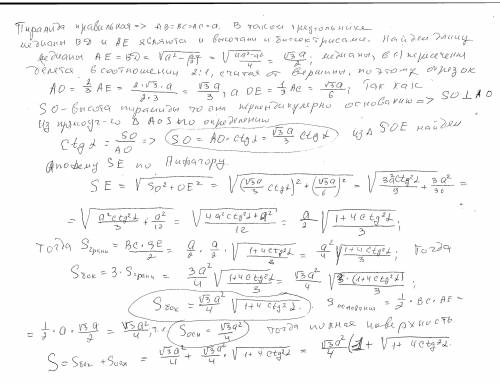 Пирамида правильная => AB=BC=AC=a. В таком треугольнике
медианы BD и AE являются и высотами и биссектрисами. Найдем длину
медианы AE=BD=√(a²-a²/4)=√((4a²-a²)/4)=√3a/2; медианы, в() пересечения
делятся в соотношении 2:1, считая от вершины, поэтому отрезок
AO=2/3 AE=2·√3·a/2·3=√3a/3, а OE=1/3 AE=√3a/6; Так как
SO-высота пирамиды то она перпендикулярно основанию=> SO⊥AO
Из прямоуг-го △AOS по определению
Ctgα=SO/AO => SO=AO·Ctgα=√3a/3 Ctgα из △SOE найдем
апофему SE по Пифагору.
SE=√(SO²+OE²)=√((√3a/3 Ctgα)²+(√3a/6)²)=√(3a²Ctg²α/9+3a²/36)=
=√(a²Ctg²α/3+a²/12)=√((4a²Ctg²α+a²)/12)=a/2 √((1+4Ctg²α)/3);
тогда Sграни=BC·SE/2=a/2·a/2·√((1+4Ctg²α)/3)=a²/4 √((1+4Ctg²α)/3); тогда
Sбок=3·Sграни=3a²/4 √((1+4Ctg²α)/3)=√3a²/4 √(3·(1+4Ctg²α)/3);
Sбок=√3a²/4 √(1+4Ctg²α). Sоснования=1/2·BC·AE=
=1/2·a·√3a/2=√3a²/4, т.е. Sосн=√3a²/4 тогда полная поверхность
S=Sбок+Sосн=√3a²/4+√3a²/4·√(1+4Ctg²α)=√3a²/4(1+√(1+4Ctg²α).